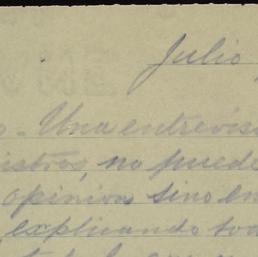 Julio
Una entrevis
istros, no puede
opinion sino en
explicando tod